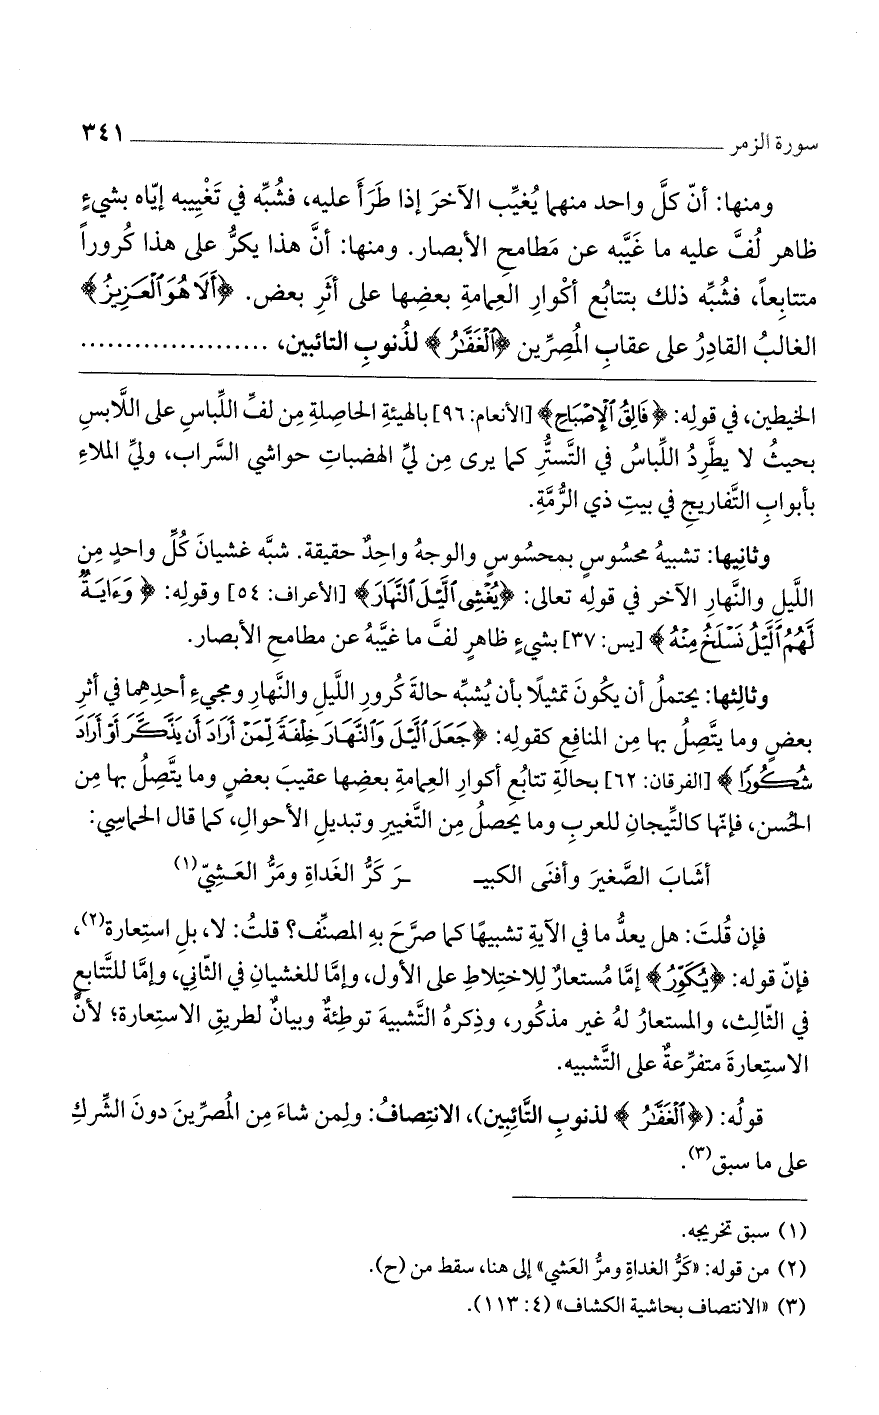 سورة الزمر ٣٤١
ومنها: أنّ كلَّ واحد منهما يُغيِّب الآخرَ إذا طَرَأَ عليه، فشُبِّه في تَغْيِيبه إيّاه بشيءٍ
ظاهر لُفَّ عليه ما غَيَّبه عن مَطامحِ الأبصار. ومنها: أنَّ هذا يكرُّ على هذا كُروراً
متتابِعاً، فشُبِّه ذلك بتتابُع أكْوارِ العِمامةِ بعضِها على أثَرِ بعض. ﴿أَلَا هُوَ ٱلْعَزِيزُ﴾
الغالبُ القادِرُ على عقابِ المُصِرِّين ﴿ٱلْغَفَّٰرُ﴾ لذُنوبِ التائبين، .....................
الخيطين، في قولِه: ﴿فَالِقُ ٱلْإِصْبَاحِ﴾ [الأنعام: ٩٦] بالهيئةِ الحاصلةِ مِن لفِّ اللِّباسِ على اللَّابسِ
بحيثُ لا يطَّرِدُ اللِّباسُ في التَّستُّرِ كما يرى مِن ليِّ الهضباتِ حواشي السَّراب، وليِّ الملاءِ
بأبوابِ التَّفاريجِ في بيتِ ذي الرُّمَّةِ.
وثانِيها: تشبيهُ محسُوسٍ بمحسُوسٍ والوجهُ واحِدٌ حقيقة. شبَّه غشيانَ كُلِّ واحدٍ مِن
اللَّيلِ والنَّهارِ الآخر في قولِه تعالى: ﴿يُغْشِى ٱلَّيْلَ ٱلنَّهَارَ﴾ [الأعراف: ٥٤] وقولِه: ﴿وَءَايَةٌ
لَّهُمُ ٱلَّيْلُ نَسْلَخُ مِنْهُ﴾ [يس: ٣٧] بشيءٍ ظاهرٍ لفَّ ما غيَّبهُ عن مطامحِ الأبصار.
وثالِثها: يحتملُ أن يكُونَ تمثيلًا بأن يُشبِّه حالةَ كُرورِ اللَّيلِ والنَّهارِ ومجيءِ أحدِهِما في أثرِ
بعضٍ وما يتَّصِلُ بها مِن المنافعِ كقولِه: ﴿جَعَلَ ٱلَّيْلَ وَٱلنَّهَارَ خِلْفَةً لِّمَنْ أَرَادَ أَن يَذَّكَّرَ أَوْ أَرَادَ
شُكُورًا﴾ [الفرقان: ٦٢] بحالةِ تتابُعِ أكوارِ العِمامةِ بعضِها عقيبَ بعضٍ وما يتَّصِلُ بها مِن
الحُسن، فإنّها كالتِّيجانِ للعربِ وما يحصلُ مِن التَّغييرِ وتبديلِ الأحوالِ، كما قال الحماسِي:
أشابَ الصَّغيرَ وأفنَى الكبيـ ـرَ كَرُّ الغَداةِ ومَرُّ العَشِيّ(١)
فإن قُلتَ: هل يعدُّ ما في الآيةِ تشبيهًا كما صرَّحَ بهِ المصنِّف؟ قلتُ: لا، بلِ استِعارة(٢)،
فإنّ قوله: ﴿يُكَوِّرُ﴾ إمَّا مُستعارٌ لِلاختِلاطِ على الأول، وإمَّا للغشيانِ في الثّاني، وإمَّا للتَّتابعِ
في الثّالِث، والمستعارُ لهُ غير مذكُور، وذِكرهُ التَّشبيهَ توطِئةٌ وبيانٌ لطريقِ الاستِعارة؛ لأنَّ
الاستِعارةَ متفرِّعةٌ على التَّشبيه.
قولُه: (﴿ٱلْغَفَّٰرُ﴾ لذنوبِ التَّائِبِين)، الانتِصافُ: ولِمن شاءَ مِن المُصرِّينَ دونَ الشِّركِ
على ما سبق(٣).
(١) سبق تخريجه.
(٢) من قوله: «كَرُّ الغداةِ ومرُّ العَشي» إلى هنا، سقط من (ح).
(٣) «الانتصاف بحاشية الكشاف» (٤: ١١٣).